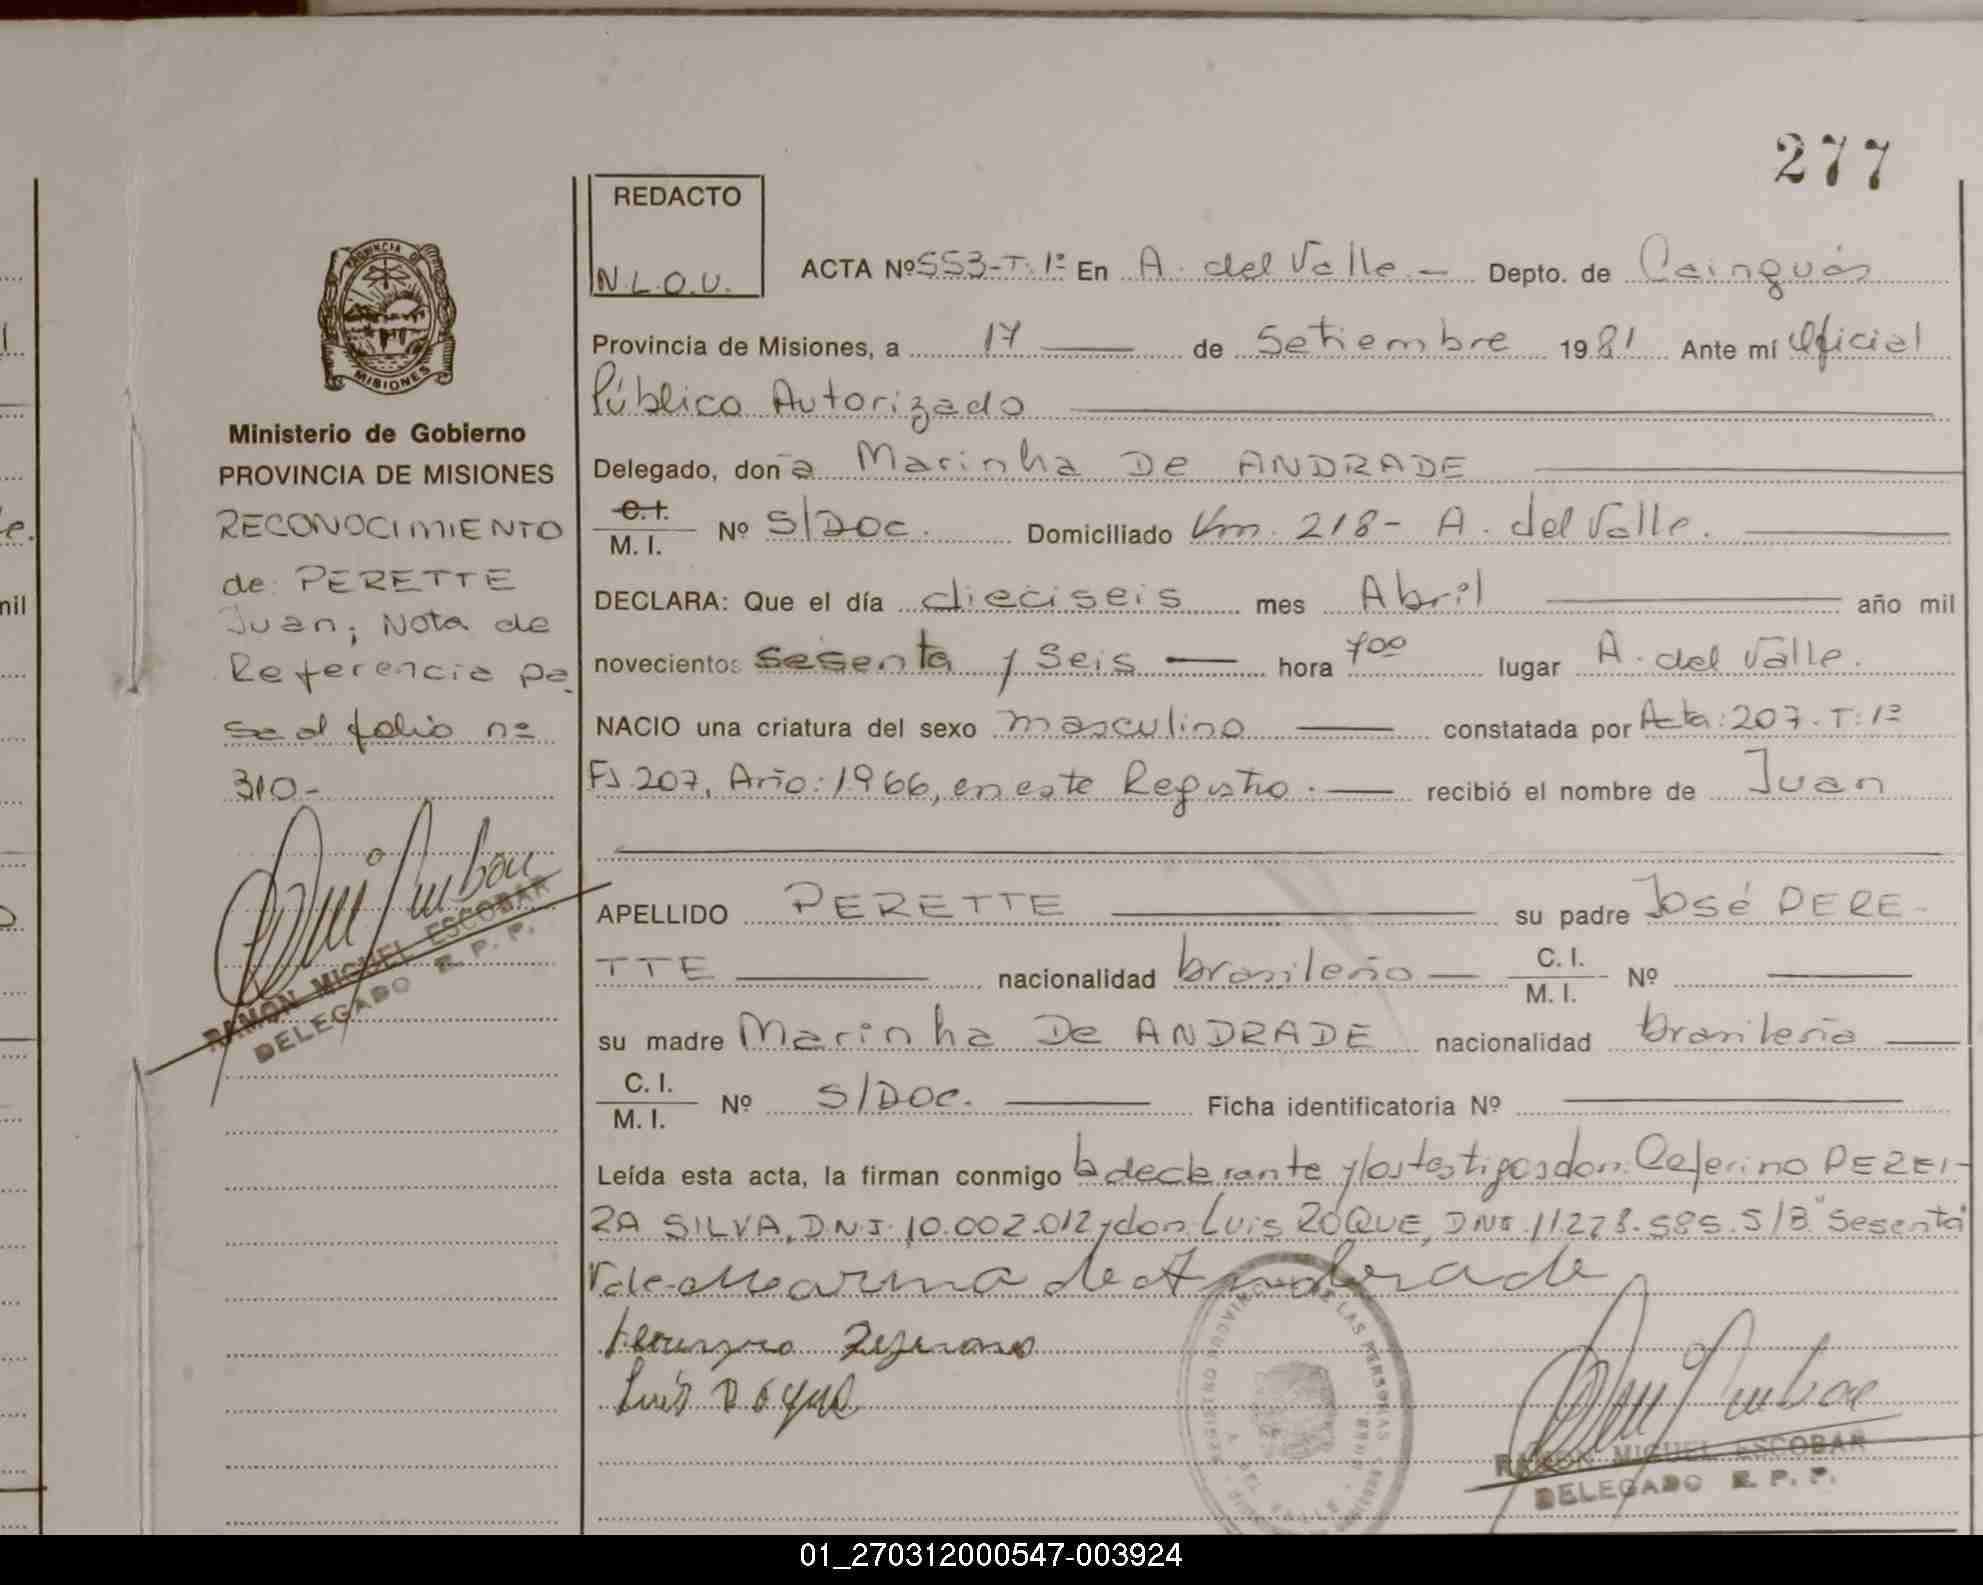 277
REDACTO
N.L.O.U.
ACTA Nº 553-T.1º En A. del Valle.- Depto. de Cainguás
Provincia de Misiones, a 17 de Setiembre 1981 Ante mí Oficial
Público Autorizado
Delegado, doña Marinha De ANDRADE
C.I. M.I. Nº S/DOC. Domiciliado Km. 218- A. del Valle.
DECLARA: Que el día dieciseis mes Abril año mil
novecientos sesenta y seis hora 700 lugar A. del Valle.
NACIO una criatura del sexo masculino constatada por Acta: 207. T: 1º
Fº 207, Año: 1966, en este Registro.- recibió el nombre de Juan
APELLIDO PERETTE su padre José PERE-
TTE nacionalidad brasileño C. I. M. I. Nº
su madre Marinha De ANDRADE nacionalidad brasileña
C. I. M. I. Nº S/DOC. Ficha identificatoria Nº
Leída esta acta, la firman conmigo la declarante y los testigos don: Ceferino PEREI-
RA SILVA, D.N.I. 10.002.012 y don Luis ROQUE, DNI. 11.278.585. S/B "Sesenta"
Vale- Marina de Andrade
Luis Roque
RAMON MIGUEL ESCOBAR
DELEGADO R. P. P.
PROVINCIA DE
MISIONES
Ministerio de Gobierno
PROVINCIA DE MISIONES
RECONOCIMIENTO
de: PERETTE
Juan; Nota de
Referencia pa
se al folio nº
310-
RAMON MIGUEL ESCOBAR
DELEGADO R. P. P.
nil
01_270312000547-003924